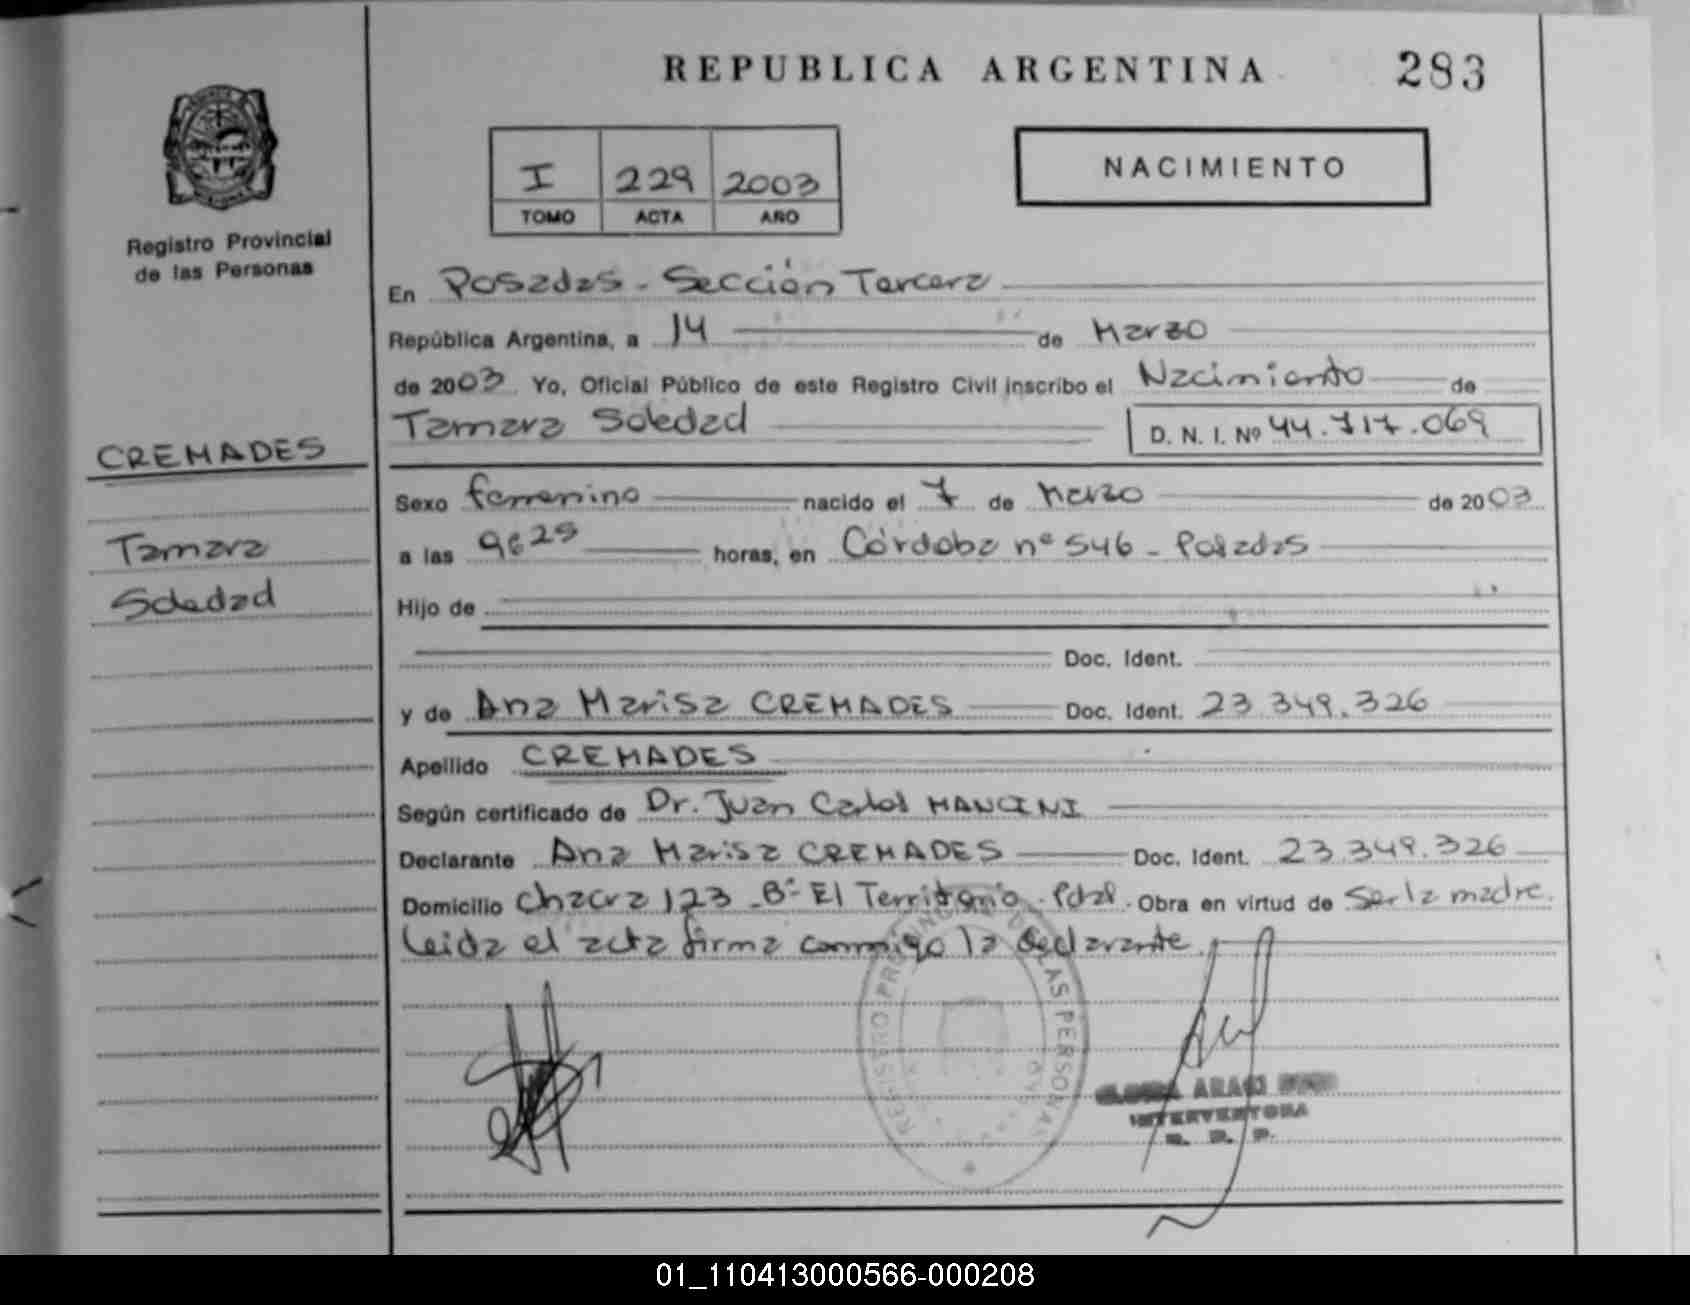 REPUBLICA ARGENTINA 283
I 229 2003
TOMO ACTA AÑO
NACIMIENTO
Registro Provincial
de las Personas
CREMADES
Tamara
Soledad
En Posadas - Sección Tercera
República Argentina, a 14 de Marzo
de 2003 Yo, Oficial Público de este Registro Civil inscribo el Nacimiento de
Tamara Soledad D. N. I. Nº 44.717.069
Sexo femenino nacido el 7 de Marzo de 2003
a las horas, en Córdoba nº 546 - Posadas
Hijo de
Doc. Ident.
y de Ana Marisa CREMADES Doc. Ident. 23.349.326
Apellido CREMADES
Según certificado de Dr. Juan Carlos MANCINI
Declarante Ana Marisa CREMADES Doc. Ident. 23.349.326
Domicilio Chacra 123 - Bº El Territorio - Pdas. Obra en virtud de Ser la madre.
Leida el acta firma conmigo la declarante.
REGISTRO PROVINCIAL DE LAS PERSONAS
ARACI
INTERVENTORA
R. P. P.
01_110413000566-000208